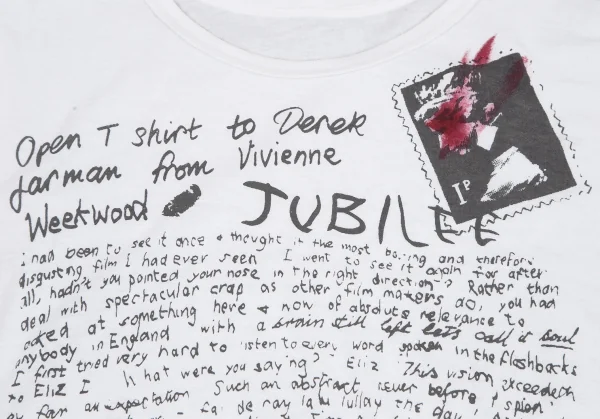 Open T shirt to Derek
Jarman from Vivienne
Weetwood
JUBILEE
1P
i had been to see it once & thought it the most boring and therefore
disgusting film I had ever seen I went to see it again for after
all, hadn't you pointed your nose in the right direction? Rather than
deal with spectacular crap as other film makers do, you had
looked at something here & now of absolute relevance to
anybody in England with a brain still left lets call it soul
I first tried very hard to listen to every word spoken in the flashbacks
to Eliz I What were you saying? Eliz This vision exceedeth
by far an expectation Such an abstract never before I spied
ray lullay the